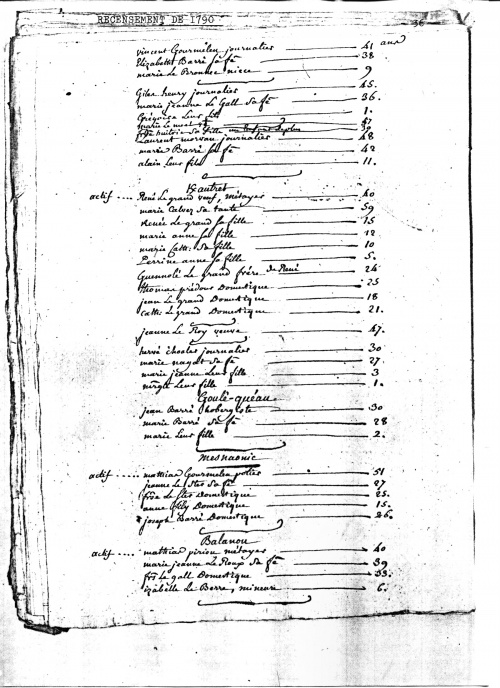 RECENSEMENT DE 1790
36
vincent Gourmelen journalier 41 ans
Elizabeth Barré sa fe 38
marie Le niece 9
Giles henry journalier 45.
marie jeanne Le Gall sa fe 36.
Grégoire Leur fils 1.
marie Le 47
sa fille 39
Laurent morvan journalier 48
marie Barré sa fe 42
alain leur fils 11.
Kautret
actif .... René Le grand veuf, métayer 40
marie Calvez sa tante 59
Renée Le grand sa fille 15
marie anne sa fille 12
marie Cath: sa fille 10
Perrine anne sa fille 5.
Guennolé Le grand frère de René 24
thomas prédour Domestique 25
jean Le grand Domestique 18
Cath: Le grand Domestique 21.
jeanne Le Roy veuve 47.
hervé journalier 30
marie sa fe 27.
marie jeanne Leur fille 3
Leur fille 1.
Goulé-quéau
jean Barré 30
marie Barré sa fe 28
marie Leur fille 2.
mesnaonic
actif ...... mathias Gourmelen 51
jeanne Le sa fe 27
Le Domestique 25.
anne fily Domestique 15.
joseph Barré Domestique 26.
Balanou
actif .... mathias piriou métayer 40
marie jeanne Le Roux sa fe 39
frs Le gall Domestique 33.
izabelle Le Berre, mineure 6.